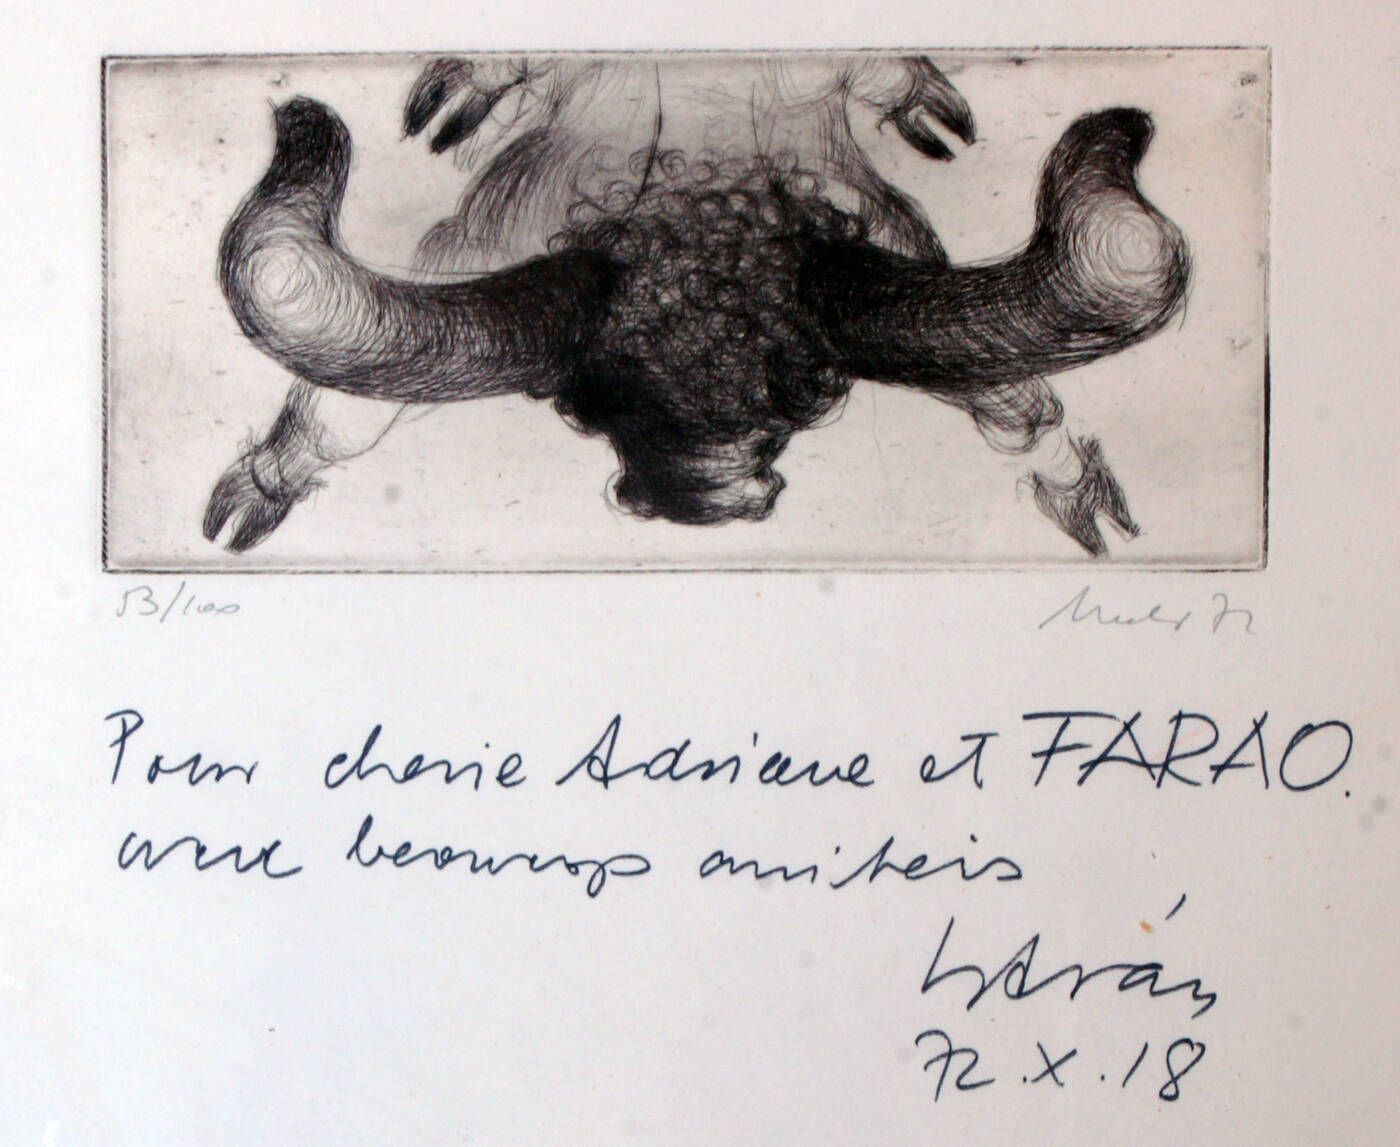 53/100
72
Pour cherie Adriane et FARAO.
avec beaucoup amiteis
István
72.X.18